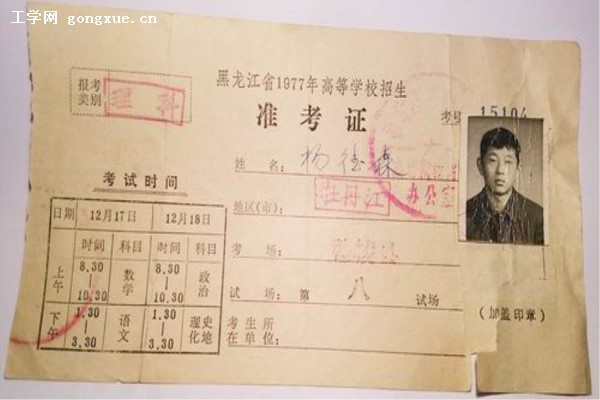 工学网 gongxue.cn
黑龙江省1977年高等学校招生
报考类别 理科
准考证
考号 15104
姓名：杨德森
考试时间
地区(市)： 牡丹江
办公室
日期 12月17日 12月18日
时间 科目 时间 科目
考场：
上午 8.30—10.30 数学 8.30—10.30 政治
试场：第八试场
下午 1.30—3.30 语文 1.30—3.30 理化 史地
考生所在单位：
(加盖印章)